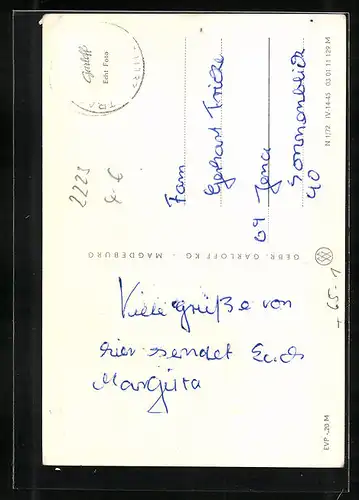 Garloff
Echt Foto
2223
Fam
Gerhart Fricke
69 Jena
Sonnenblick
40
GEBR. GARLOFF KG - MAGDEBURG
Viele Grüße von
hier sendet Euch
Margitta
+65-1
N 1/72 IV-14-45 03 01 11 129 M
EVP -,20 M